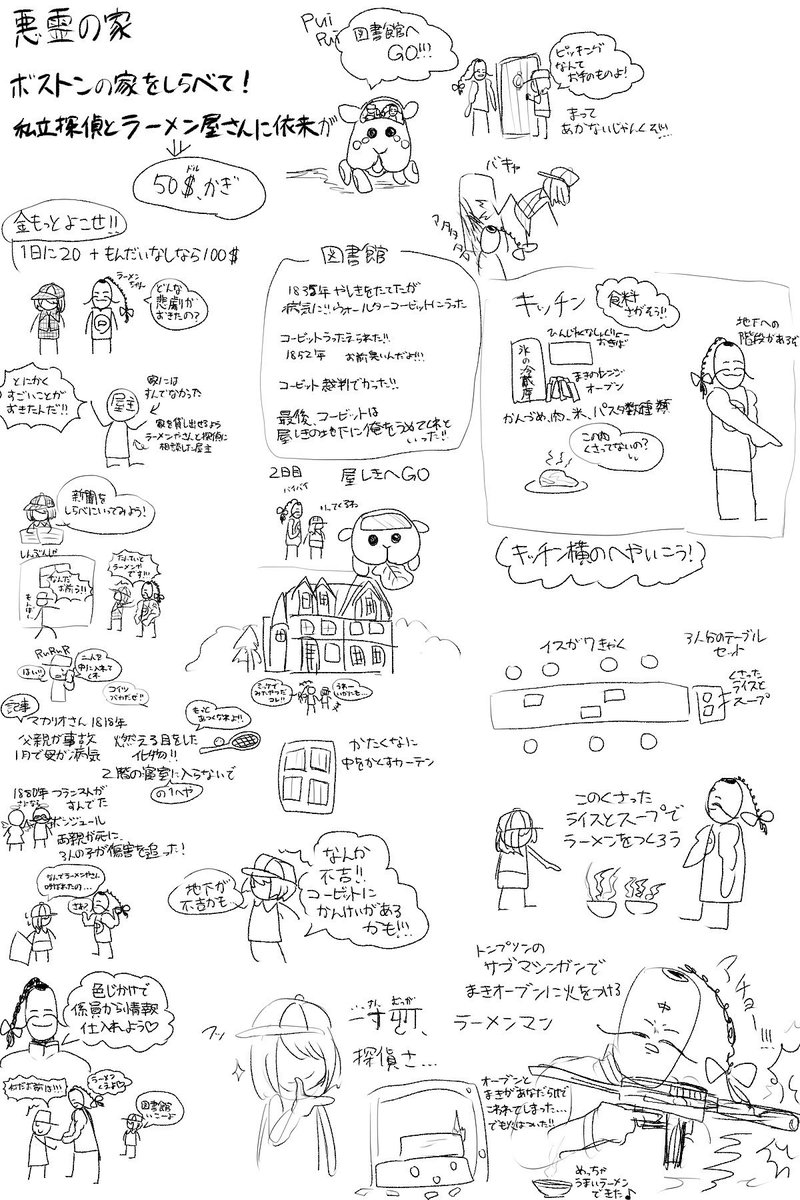 悪霊の家
ボストンの家をしらべて！
私立探偵とラーメン屋さんに依来が
50$、かぎ
ドル
金もっとよこせ!!
1日に20+もんだいなしなら100$
ラーメン
どんな
悲劇が
おきたの？
とにかく
すごいことが
おきたんだ!!
屋主
家には
すんでなかった
家を貸し出せるよう
ラーメンやさんと探偵に
相談した屋主
新聞を
しらべにいってみよう！
しんぶんしゃ
なんだ
お前う!!
もんばん
たんていと
ラーメンや
です!!
RuRuR
はい!!
二人を
中に入れて
くれ
コイツ
バカだぜ!!
記事
マカリオさん1818年
父親が事故
1月で母が病気
燃える目をした
化物!!
もっと
あつくなれよ!!
2階の寝室に入らないで
の1へや
1880年フランス人が
すんでた
ボンジュール
両親が死に、
3人の子が傷害を追った！
なんでラーメンやさん
呼ばれたの…
さあ？
色じかけで
係員から情報
仕入れよう♡
ラーメン
図書館
いこーよ
Pui
Pui
図書館へ
GO!!!
ピッキング
なんて
お手のものよ！
まって
あかないじゃんくそ!!!
バキャ
図書館
1835年やしきをたてたが
病気に!!ウォールターコービットにうった
コービットうったえられた!!
1852年
お前臭いんだよ!!!
コービット裁判でかった!!
最後、コービットは
屋しきの地下に俺をうめてくれと
いった!!
2日目
屋しきへGO
バイバイ
いってくるわ
かたくなに
中をかくすカーテン
地下が
不吉かも…
なんか
不吉!!
コービットに
かんけいがある
かも!!!
フッ
探偵さ…
キッチン
食料
さがそう!!
地下への
階段がある
氷の冷蔵庫
おきば
まきのレンジ
オーブン
かんづめ、肉、氷、パスタ数種類
この肉
くさってないの？
キッチン横のへやいこう！
イスが7きゃく
3人分のテーブル
セット
くさった
ライスと
スープ
このくさった
ライスとスープで
ラーメンをつくろう
トンプソンの
サブマシンガンで
まきオーブンに火をつける
ラーメンマン
アチョー!!!
オーブンと
まきがあなだらけで
こわれてしまった…
でも火はついた!!
めっちゃ
うまいラーメン
できた♪